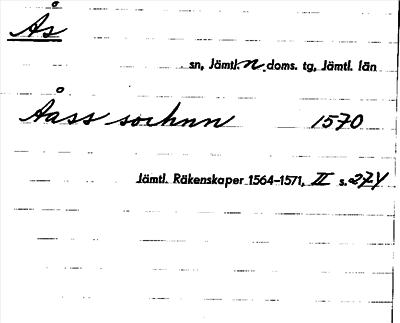 Ås
sn, Jämtl. n. doms. tg, Jämtl. län
Åass socknn 1570
Jämtl. Räkenskaper 1564-1571, II s.